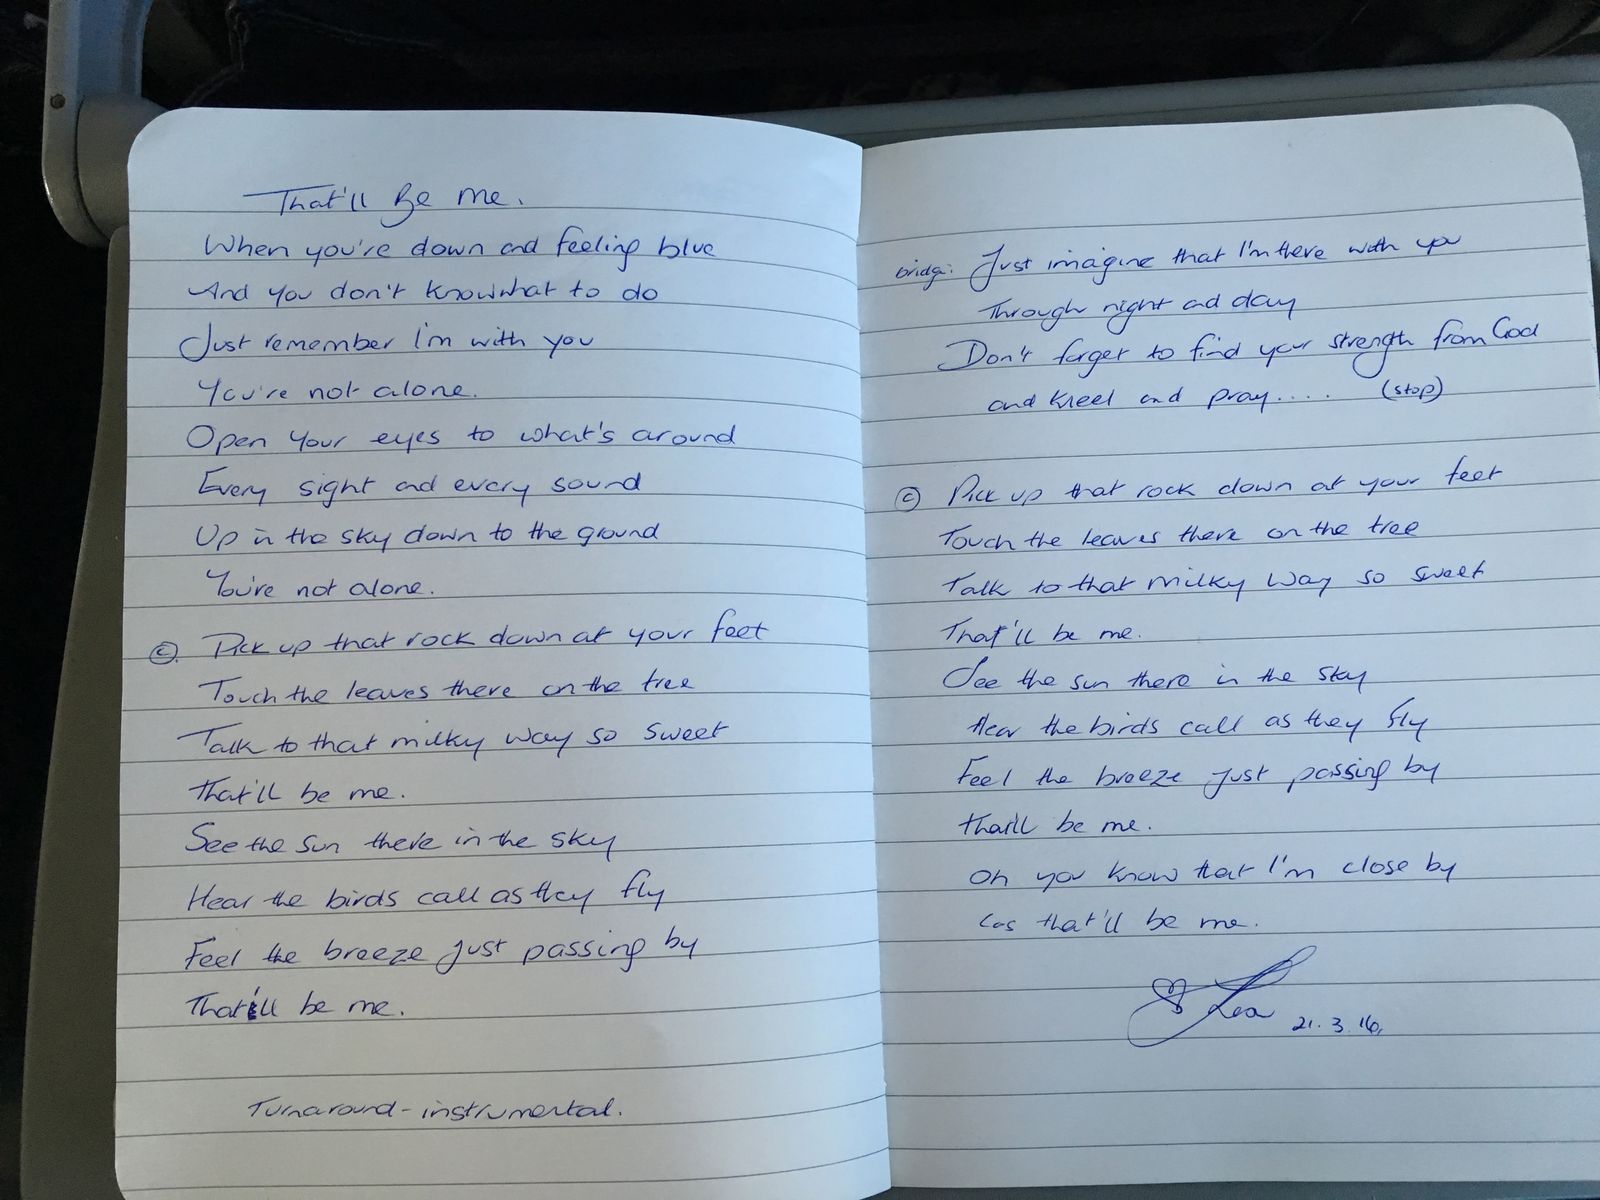 That'll Be me.
When you're down and feeling blue
And you don't know what to do
Just remember I'm with you
You're not alone.
Open your eyes to what's around
Every sight and every sound
Up in the sky down to the ground
You're not alone.
©. Pick up that rock down at your feet
Touch the leaves there on the tree
Talk to that milky way so sweet
That'll be me.
See the sun there in the sky
Hear the birds call as they fly
Feel the breeze just passing by
That'll be me.
Turnaround - instrumental.
bridge: Just imagine that I'm there with you
Through night and day
Don't forget to find your strength from God
and kneel and pray.... (stop)
© Pick up that rock down at your feet
Touch the leaves there on the tree
Talk to that milky way so sweet
That'll be me.
See the sun there in the sky
Hear the birds call as they fly
Feel the breeze just passing by
that'll be me.
Oh you know that I'm close by
Cos that'll be me.
21.3.16.